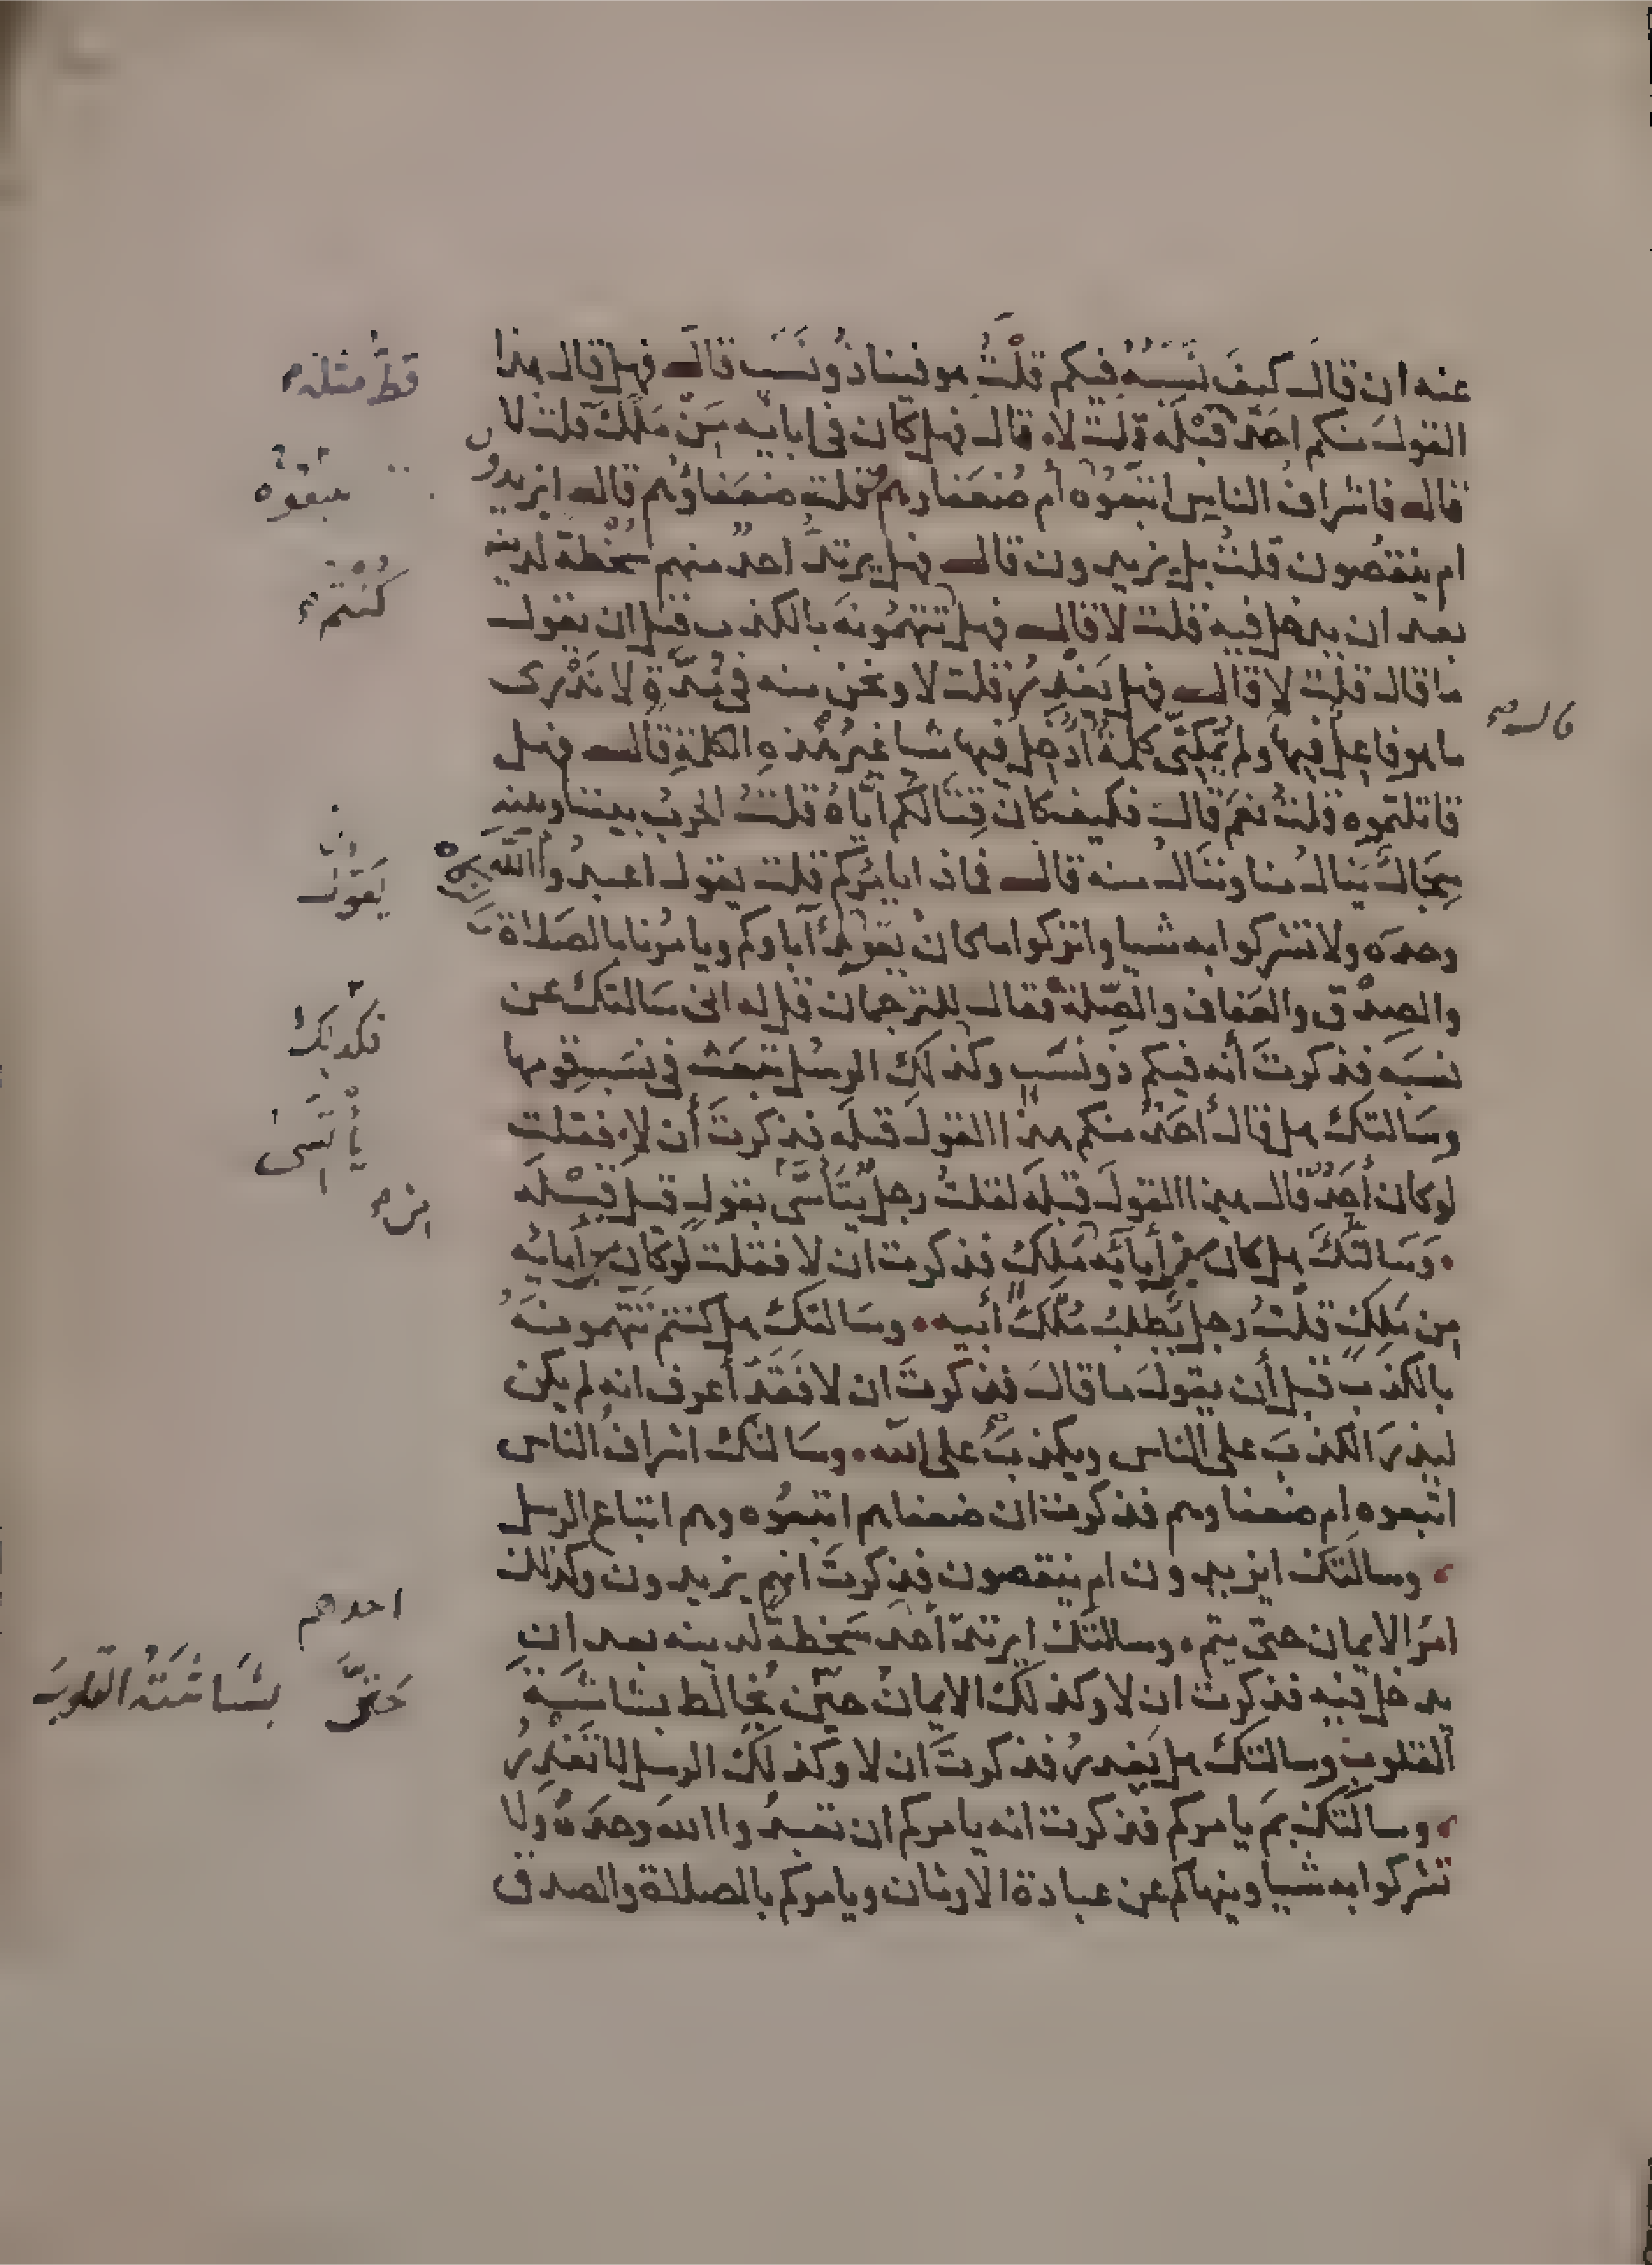 عنه ان قالَ كيفَ نَسَبُهُ فيكم قلْتُ هو فينا ذُو نَسَبٍ قالَ فهل قال هذا
القولَ منكم احَدٌ قبْلَه قلت لا قال فهل كان في ابائه مِنْ مَلِك قلت لا
قال فاشرافُ الناس اتبعُوه أم ضُعَفاوهم قلت ضعفاؤُهم قال ايزيدون
ام ينقصون قلتُ بل يزيدون قال فهل يرتدُّ احدٌ منهم سُخْطَةً لدينه
بعد ان يدخل فيه قلت لا قال فهل تتهمُونَه بالكذب قبل ان يقول
ما قال قلت لا قال فهل يَغْدِرُ قلت لا ونحن منه في مُدَّةٍ لا نَدْرى
ما هو فاعِلٌ فيها ولم يُمْكِنّي كلمةٌ أُدْخِلُ فيها شيا غيرُ هٰذِهِ الكلمةِ قال فهل
قاتلتموه قلتُ نعَم قال فكيف كان قِتالُكُم ايَّاهُ قلتُ الحربُ بيننا وبينه
سِجَالٌ يَنالُ منا وننالُ منه قال فماذا يامُركم قلت يقول اعبدُوا الله
وحدَه ولا تشركوا به شيا واتركوا ما كان يعبد آباوكم ويامرُنا بالصلاة
والصِدْق والعَفاف والصِّلَة فقال للترجمان قل له انى سَالتك عن
نسَبه فذكرتَ أنه فيكم ذو نسَبٍ وكذلك الرسُل تبعَث في نسَب قومها
وسَالتك هل قال أحَدٌ منكم هذا القولَ قبله فذكرتَ أن لا فقلت
لو كان أحَدٌ قال هذا القولَ قبْلَه لقلتُ رجلٌ يَتَأسَّى بقولٍ قيل قبْلَه
وَسَالتُكَ هل كان مِن أبائه مَلِكٌ فذكرت ان لا فقلت لو كان من أبائه
مِن مَلِكٍ قلتُ رجلٌ يَطلبُ مُلْكَ أبيه وسَالتك هل كنتم تتهمونه
بالكذب قبل أن يقولَ ما قالَ فذكرتَ ان لا فَقَدْ أعرف انه لم يكن
ليذرَ الكذبَ على الناس ويكذبَ على الله وسَالتك اشرافُ الناس
اتبعوه ام ضعفاوهم فذكرت ان ضعفاهم اتبعُوه وهم اتباع الرسل
وسالتك ايزيدون ام ينقصون فذكرتَ انهم يزيدون وكذلك
امرُ الايمان حتى يتم وسالتك ايرتدّ أحد سَخطةً لدينه بعد ان
يدخل فيه فذكرت ان لا وكذلك الايمانُ حتى تخالط بشاشتُه
القلوب وسالتك هل يَغدرُ فذكرتَ ان لا وكذلك الرسل لا تَغْدِرُ
وسالتك بمَ يامركم فذكرت انه يامركم ان تعبدُوا الله وحدَهُ ولا
تشركوا به شيا وينهاكم عن عبادة الاوثان ويامركم بالصلاة والصدق
قطُّ مثله
يتبعوه
كُنْتُم
قال
يقول
فكذلك
يأتسى
من
احدهم
حتى
بشَاشَتُه القلوبَ